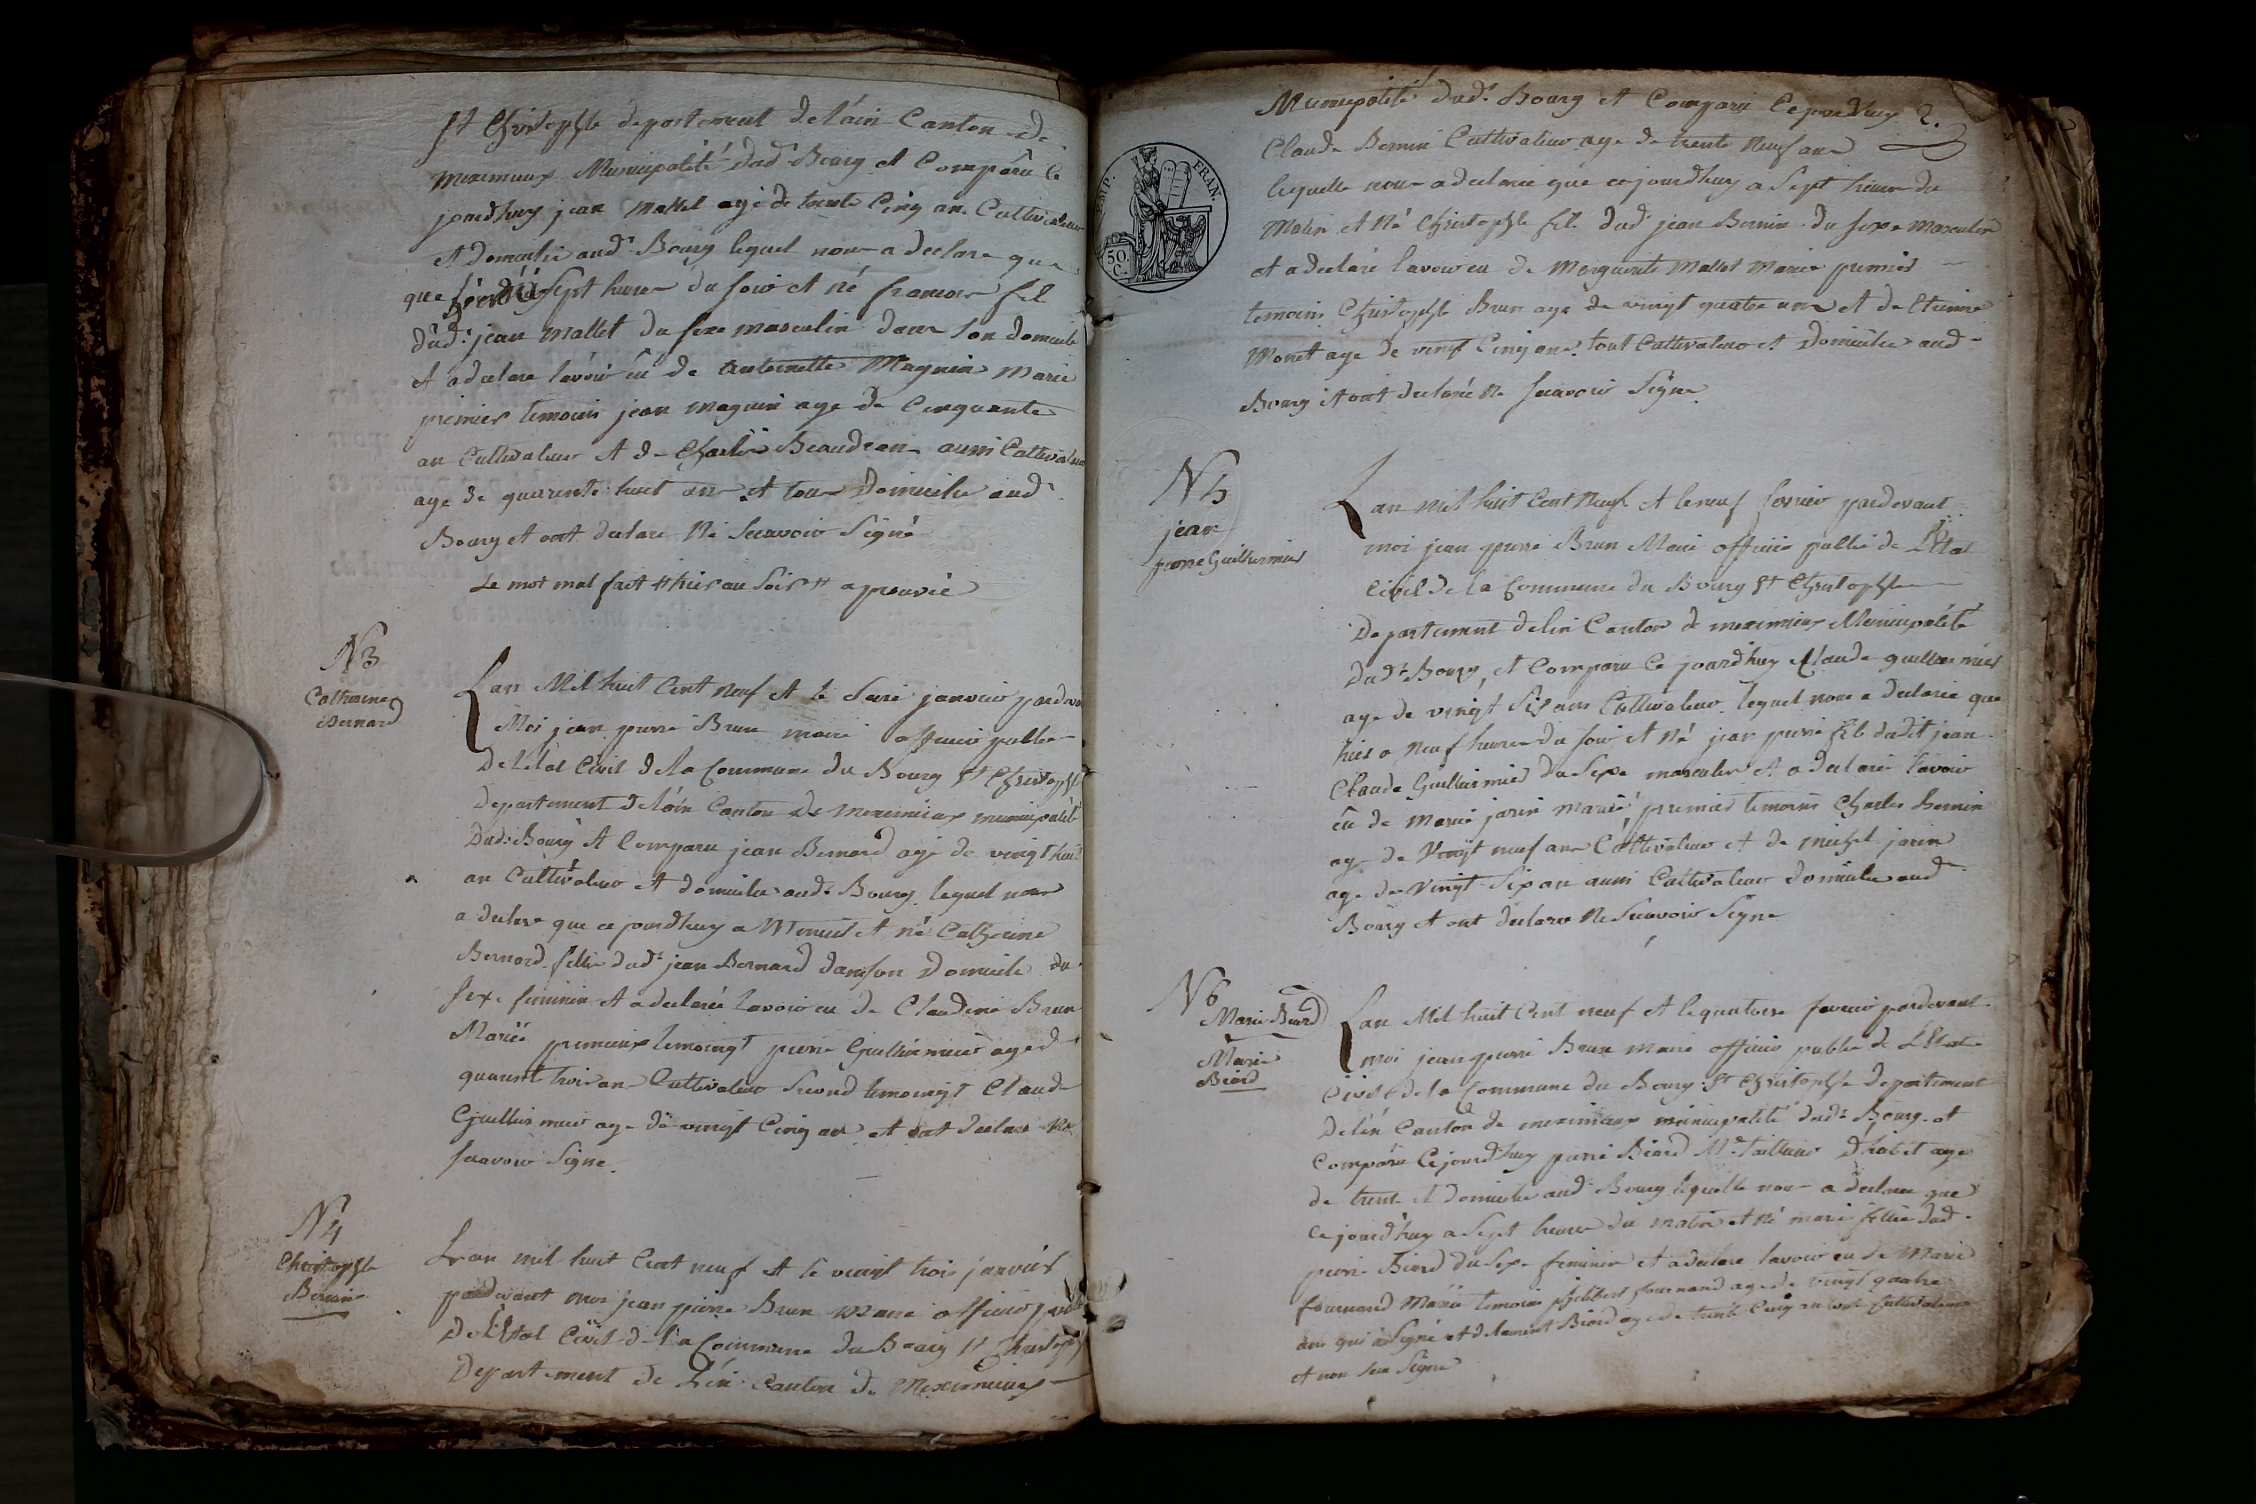 St Christophle departement de láin Canton de
meximieux Municipalité dudt Bourg et Comparu Ce
jourdhuy jean Mallet agé de trente Cinq an Cultivateur
et Domicilié audt Bourg lequel nous a declare que
que sept heures du soir et né francois fils
dudt jean Mallet du sexe masculin dans son domicile
et a declare lavoir eu de antoinette Magnin Marié
premier temoins jean magnin age de Cinquante
an Cultivateur et de Charles Beaudran aussi Cultivateur
age de quarente huit ans et tous Domicilie audt
Bourg et ont declare Ne Scavoir Signé
Le mot mal fait # hier au Soir # aprouvé
N3
Catherine
Bernard
Lan Mil huit Cent neuf et le Seize janvier pardevant
Moi jean pierre Brun maire officier public
De létat Civil de la Commune du Bourg St Christophle
Departement de láin Canton de Meximieux municipalité
Dudt Bourg et Comparu jean Bernard agé de vingt huit
an Cultivateur et domicilie audt Bourg lequel nous
a declare que ce jourdhuy a Minuit et né Catherine
Bernard fille dudt jean Bernard dans son Domicile du
sexe feminin et a declaré lavoir eu de Claudine Brun
Marié premier temoingt pierre Guillermier age de
quarent trois an Cultivateur Second temoingt Claude
Guillermier age de vingt Cinq an et ont declare Ne
scavoir Signe.
N4
Christophle
Bernin
Lan mil huit Cent neuf et le vingt trois janvier
pardevant moi jean pierre Brun maire officier public
De létat Civil de la Commune du Bourg St Christophle
Departement de léin Canton de Meximieux
Municipalité dudt Bourg et Comparu Ce jourdhuy 2.
Claude Bernin Cultivateur age de trente neuf ans
lequelle nous a declaree que ce jourdhuy a Sept heures du
Matin et Né Christophle fils dudt jean Bernin du sexe masculin
et a declaré lavoir eu de Marguerite Mallet Marié premier
temoins Christophle Brun age de vingt quatre ans et de Etienne
Monet age de vingt Cinq ans tout Cultivateur et Domicilie audt
Bourg et ont declaré ne scavoir Signe
EMP. FRAN.
50
C.
N5
jean
pierre Guillermier
Lan mil huit Cent Neuf et le neuf fevrier pardevant
moi jean pierre Brun Maire officier public de LEtat
Civil de la Commune du Bourg St Christophle
Departement de lein Canton de meximieux Municipalité
Dudt Bourg et Comparu Ce jourdhuy Claude guillermier
age de vingt Six ans Cultivateur lequel nous a declaree que
hier a Neuf heures du soir et Né jean pierre fils dudit jean
Claude Guillermier du Sexe masculin et a declaré lavoir
eu de Marie jarin Marié, premier temoins Charles Bernin
age de Vingt neuf ans Cultivateur et de michel jarin
age de Vingt Six an aussi Cultivateur domicilie audt
Bourg et ont declaree Ne Scavoir Signe
N6
Marie Biard
Marie
Biard
Lan Mil huit Cent neuf et le quatorze fevrier pardevant
moi jean pierre Brun maire officier public de LEtat
Civil de la Commune du Bourg St Christophle Departement
De léin Canton de meximieux municipalité dudt Bourg et
Comparu Ce jourdhuy pierre Biard Mde Tailleur Dhabit age
de trent et domicilie audt Bourg lequelle nous a declaree que
ce jourdhuy a Sept heures du matin et Né marie fillie dudt
pierre Biard du Sexe feminin et a declare lavoir eu de Marie
fournand Mariée temoins philibert fournand age de vingt quatre
ans qui a Signé et de Biard age de trente Cinq an tout Cultivateur
et non seu Signe